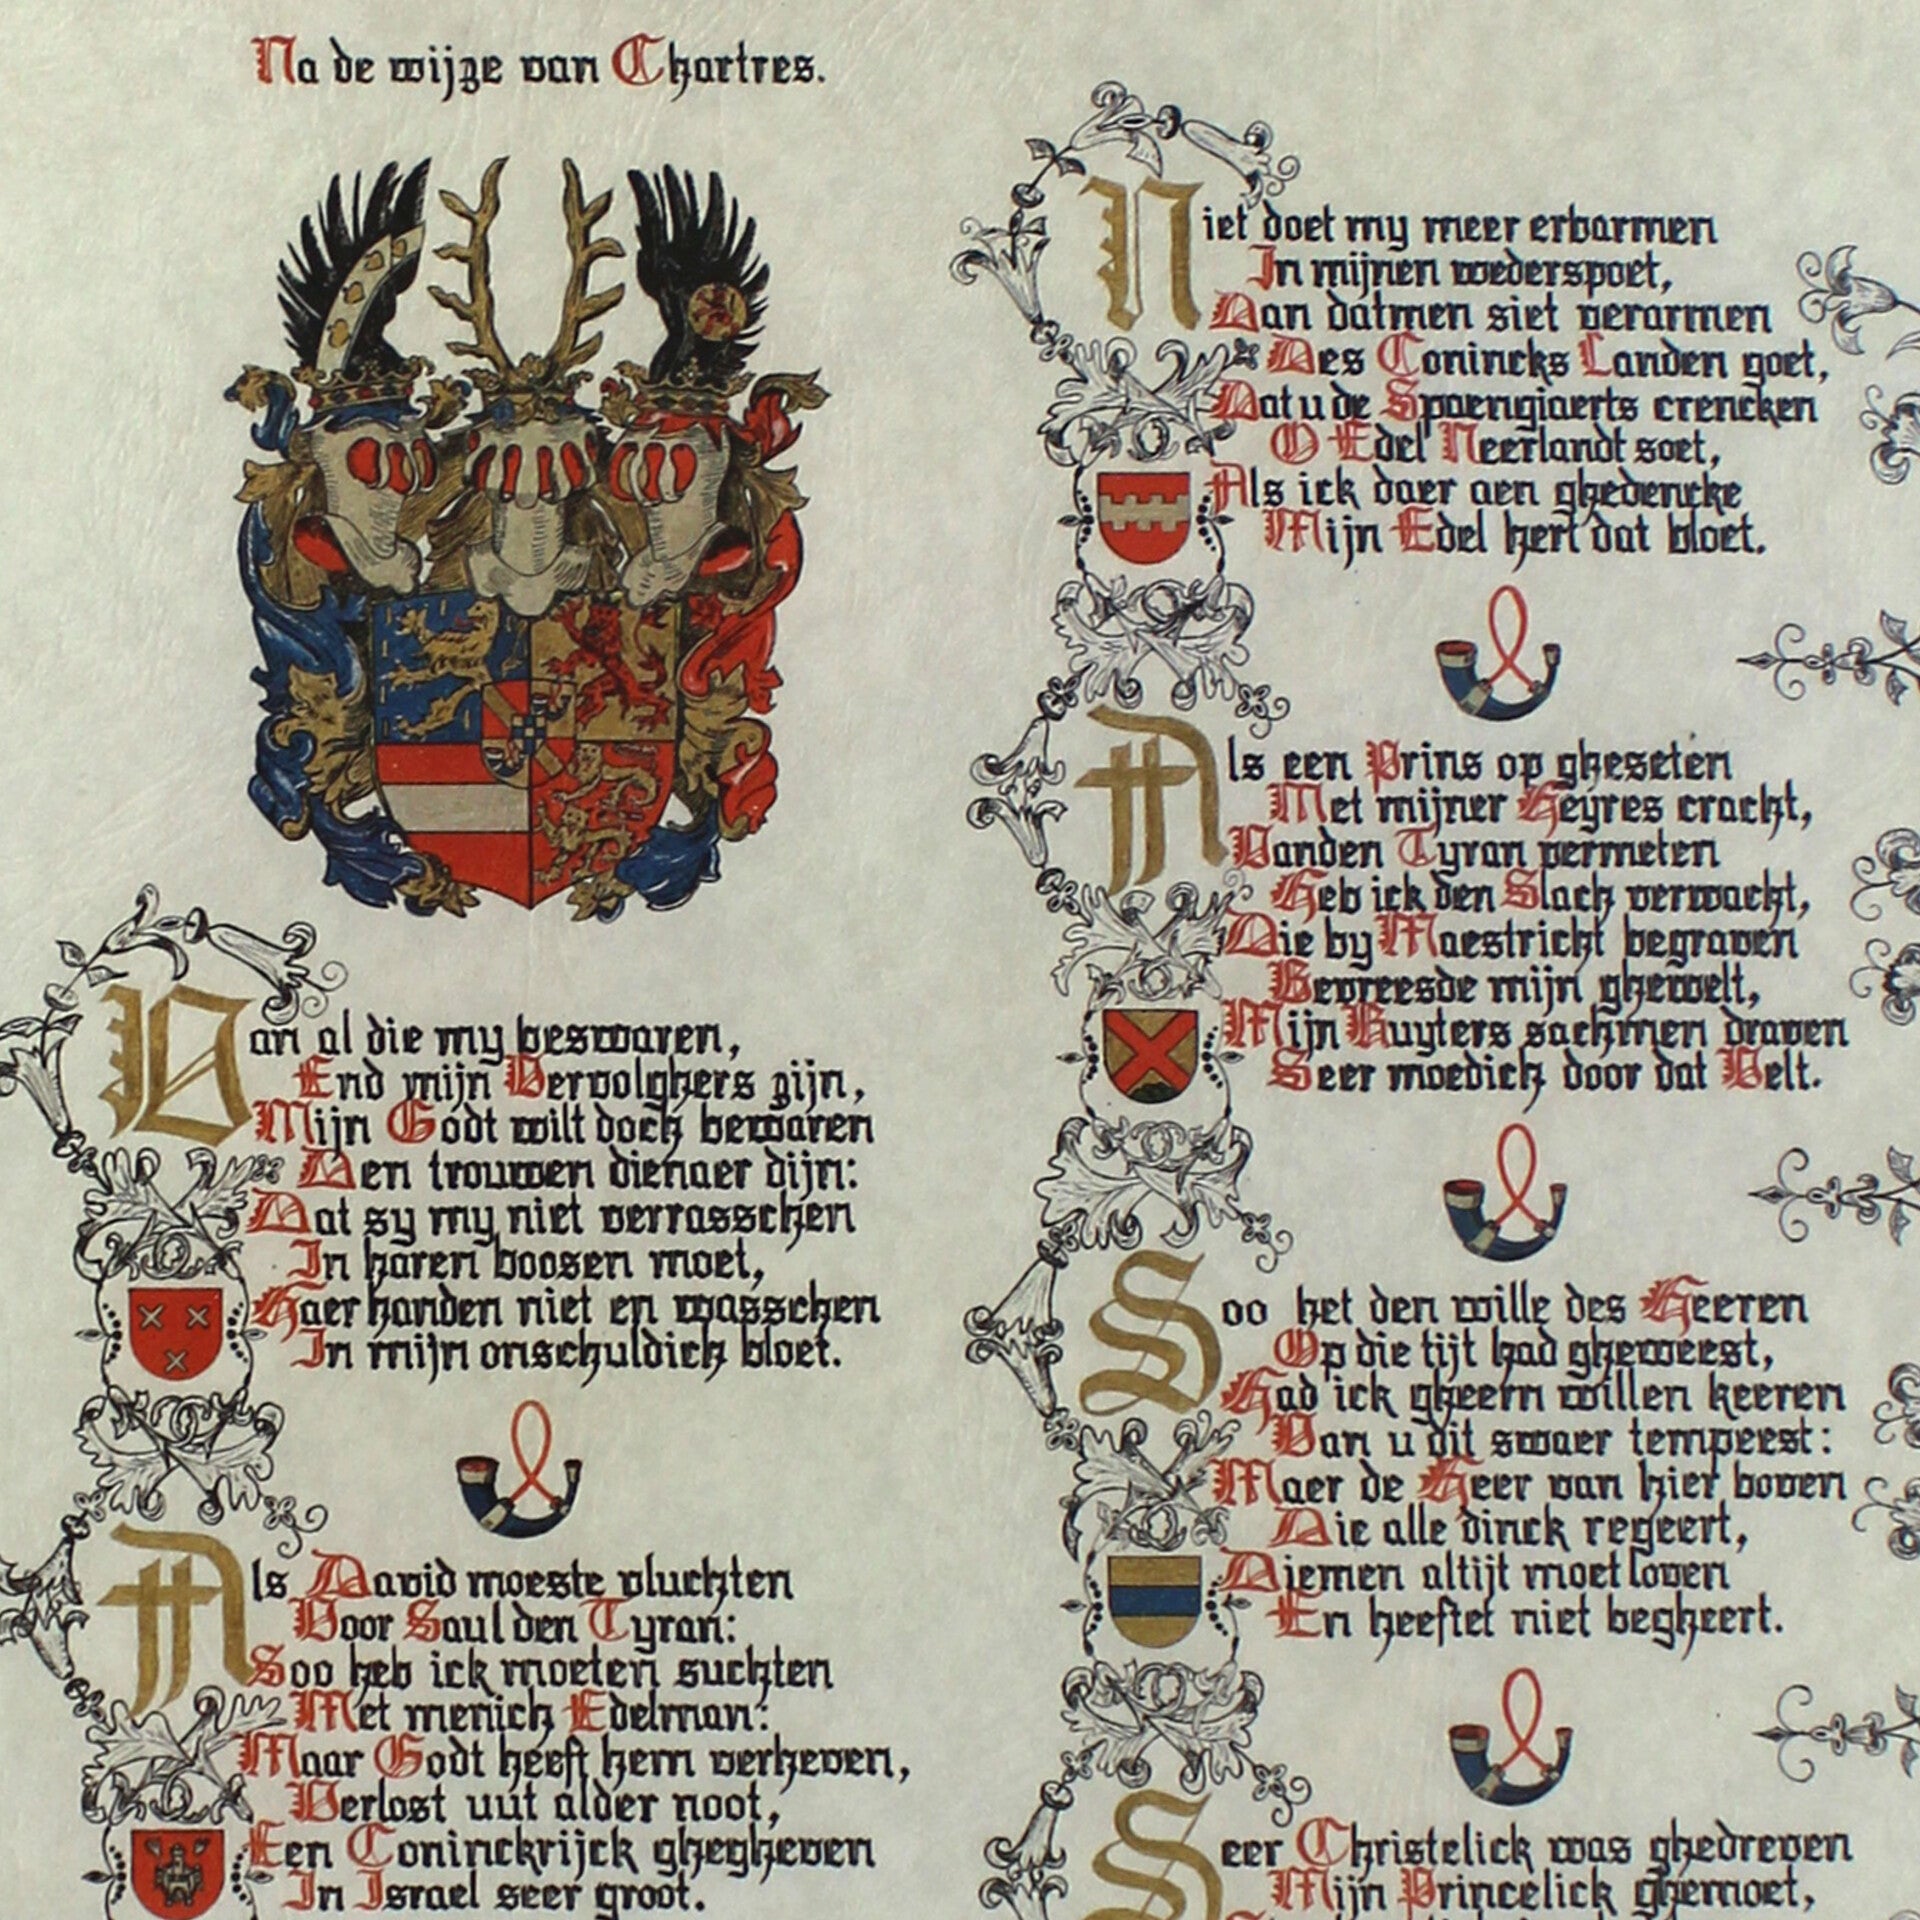 Na de wijze van Chartres.
Van al die my beswaren,
End mijn Vervolghers zijn,
Mijn Godt wilt doch bewaren
Den trouwen dienaer dijn:
Dat sy my niet verrasschen
In haren boosen moet,
Haer handen niet en wasschen
In mijn onschuldich bloet.
Als David moeste vluchten
Voor Saul den Tyran:
Soo heb ick moeten suchten
Met menich Edelman:
Maar Godt heeft hem verheven,
Verlost uut alder noot,
Een Coninckrijck ghegheven
In Israel seer groot.
Niet doet my meer erbarmen
In mijnen wederspoet,
Dan datmen siet verarmen
Des Conincks Landen goet,
Dat u de Spaengiaerts crencken
O Edel Neerlandt soet,
Als ick daer aen ghedencke
Mijn Edel hert dat bloet.
Als een Prins op gheseten
Met mijner Heyres cracht,
Vanden Tyran vermeten
Heb ick den Slach verwacht,
Die by Maestricht begraven
Bevreesde mijn ghewelt,
Mijn Ruyters sachmen draven
Seer moedich door dat Velt.
Soo het den wille des Heeren
Op die tijt had gheweest,
Had ick gheern willen keeren
Van u dit swaer tempeest:
Maer de Heer van hier boven
Die alle dinck regeert,
Diemen altijt moet loven
En heeftet niet begheert.
Seer Christelick was ghedreven
Mijn Princelick ghemoet,